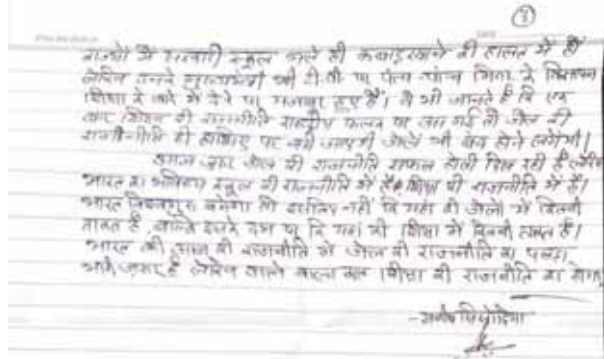 3
राज्यों में सरकारी स्कूल भले ही कबाड़खाने की हालत में हों
लेकिन उनके मुख्यमंत्री भी टी.वी पर पांच पांच मिनट के विज्ञापन
शिक्षा के बारे में देने पर मजबूर हुए हैं। वे भी जानते हैं कि एक
बार शिक्षा की राजनीति राष्ट्रीय फलक पर आ गई तो जेल की
राजनीति हाशिए पर नहीं जाएगी जेलें भी बंद होने लगेंगी।
आज जरूर जेल की राजनीति सफल होती दिख रही है लेकिन
भारत का भविष्य स्कूल की राजनीति में है शिक्षा की राजनीति में है।
भारत विश्वगुरु बनेगा तो इसलिए नहीं कि यहां की जेलों में कितनी
ताकत है, बल्कि इसके दम पर कि यहां की शिक्षा में कितनी ताकत है।
भारत की आज की राजनीति में जेल की राजनीति का पलड़ा
भारी जरूर है लेकिन आने वाला कल शिक्षा की राजनीति का होगा
- मनीष सिसोदिया